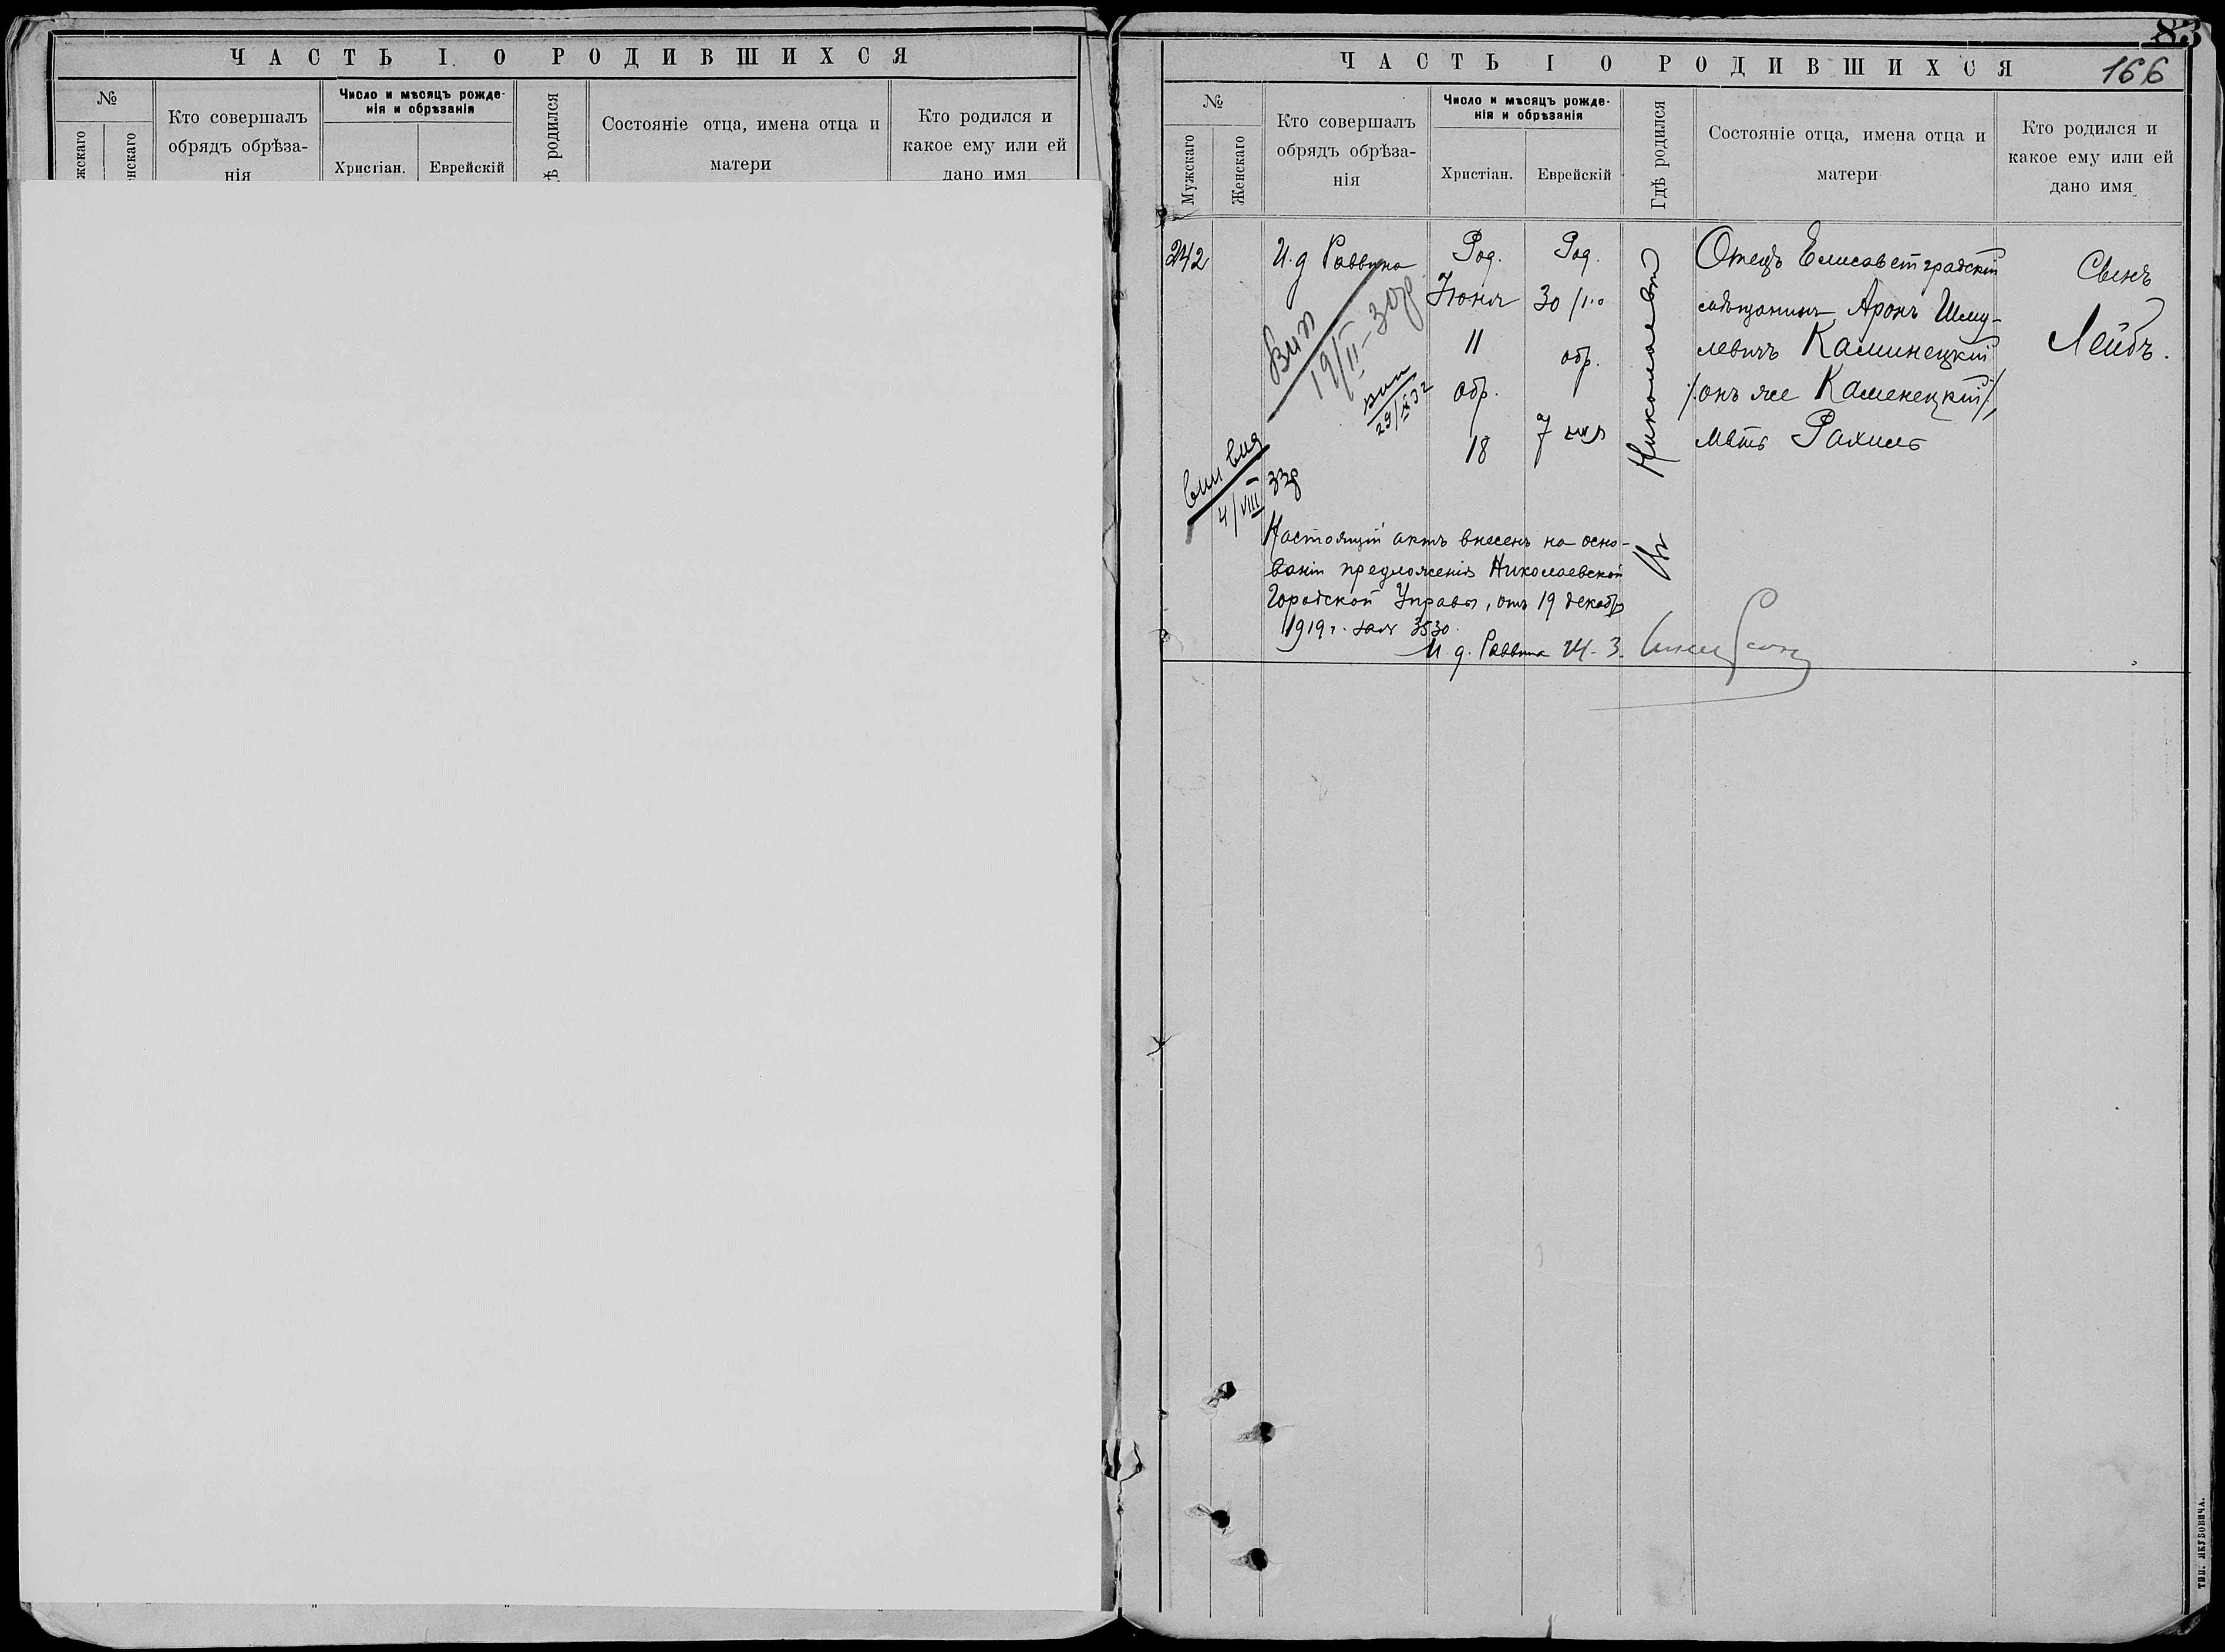 ЧАСТЬ I. О РОДИВШИХСЯ
№
Кто совершалъ
обрядъ обрѣза-
нія
Число и мѣсяцъ рожде-
нія и обрѣзанія
Христіан.
Еврейскій
родился
Состояніе отца, имена отца и
матери
Кто родился и
какое ему или ей
дано имя
83
ЧАСТЬ I О РОДИВШИХСЯ
166
№
Мужскаго
Женскаго
Кто совершалъ
обрядъ обрѣза-
нія
Число и мѣсяцъ рожде-
нія и обрѣзанія
Христіан.
Еврейскій
Гдѣ родился
Состояніе отца, имена отца и
матери
Кто родился и
какое ему или ей
дано имя
242
И. д Раввина
Род.
Іюня
11
обр.
18
Род.
30
обр.
7
Николаевѣ
Отецъ Елисаветградскій
мѣщанинъ Аронъ Шму-
левичъ Каминецкій
/:онъ же Каменецкій:/,
мать Рахиль
Сынъ
Лейбъ.
19/II-30г
29/X 32
4/VIII 33г
Настоящій актъ внесенъ на осно-
ваніи предложенія Николаевской
Городской Управы, отъ 19 декабр
1919 г. за № 3530.
И. д. Раввина Ш. З.
ТИП. ЯКУБОВИЧА.